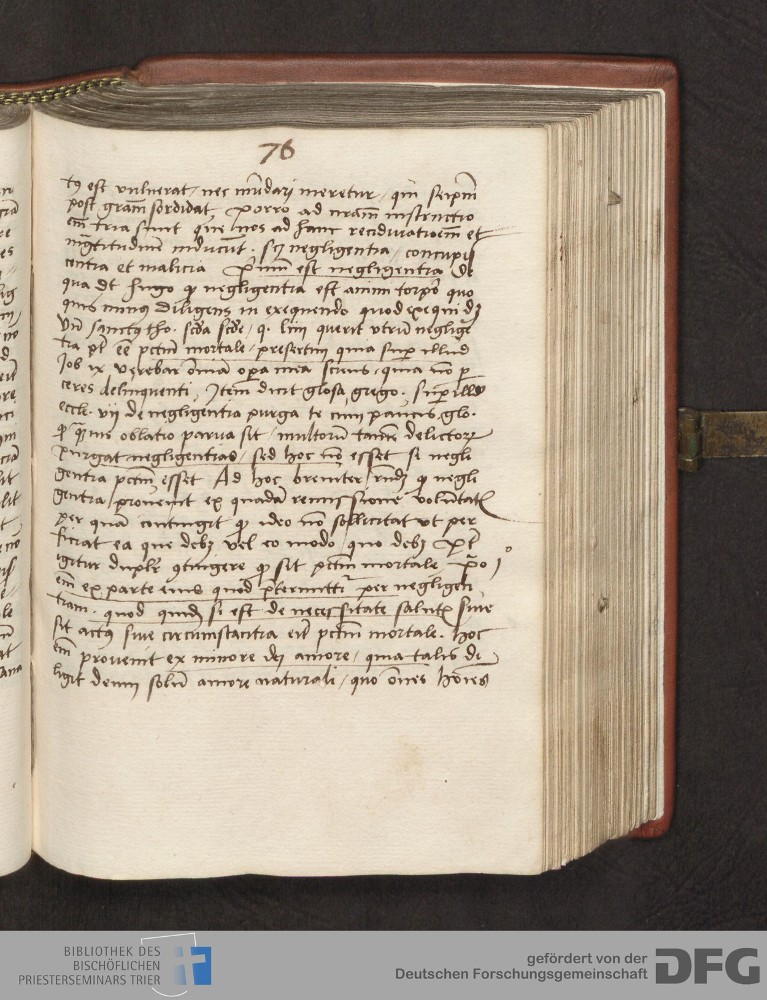 76
tꝰ est vulnerat / nec mūdari meretur / qui seipm̄
post gram̄ sordidat / Porro ad nr̄am instructio
em̄ tria sunt que nos ad hanc recidiuatioēm et
ingtitudinē inducūt . scꝫ negligentia / concupis
centia et malicia Pͥmū est negligentia de
qua dt Hugo qꝫ negligentia est animi torpor quo
quis minus diligens in exequendo quod exequi dꝫ
Vn̄ sanctꝰ tho . scd̄a scd̄e / q. liiij querit vtrū neglige
tia pt eē pctm̄ mortale / presertim quia sup illud
Job ix Verebar om̄ia opera mea sciens / quia nō p
ceres delinquenti / Item dicit glosa grego . super illo
eccl. vij de negligentia purga te cum paucis / glo.
qꝫ quis oblatio parua sit / multorū tamē delictorꝝ
purgat negligentias / sed hoc nō esset si negli
gentia pctm̄ esset Ad hoc breuiter rn̄dꝫ qꝫ negli
gentia / prouenit ex quadā remissione volūtatis
per quā contingit qꝫ ideo nō sollicitat vt per
ficiat ea que debꝫ vel eo modo / quo debꝫ Pt
igitur duplr 9tingere qꝫ sit pctm̄ mortale Pͥo
em̄ ex parte eius quod p̄termittiꝰ per negligen
tiam . quod quidē si est de necessitate salutis siue
sit actꝰ siue circumstantia erit pctm̄ mortale . Hoc
em̄ prouenit ex minore dei amore / quia talis di
ligit deum solū amore naturali / quo om̄es hoīes
BIBLIOTHEK DES
BISCHÖFLICHEN
PRIESTERSEMINARS TRIER
gefördert von der
Deutschen Forschungsgemeinschaft
DFG